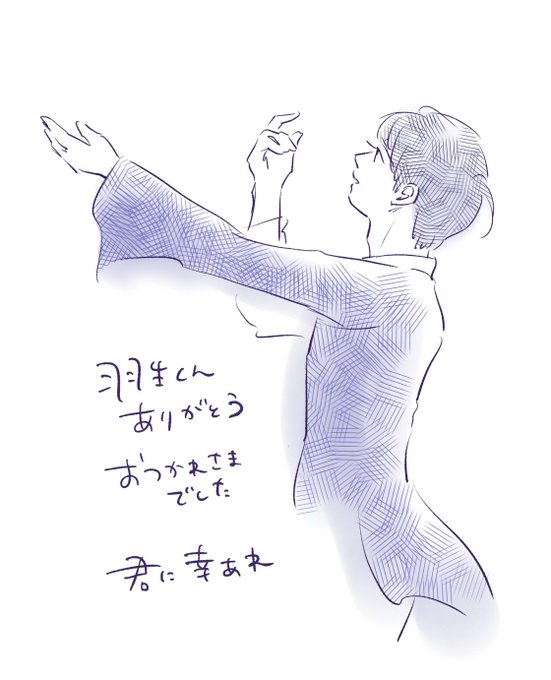 羽生くん
ありがとう
おつかれさま
でした
君に幸あれ